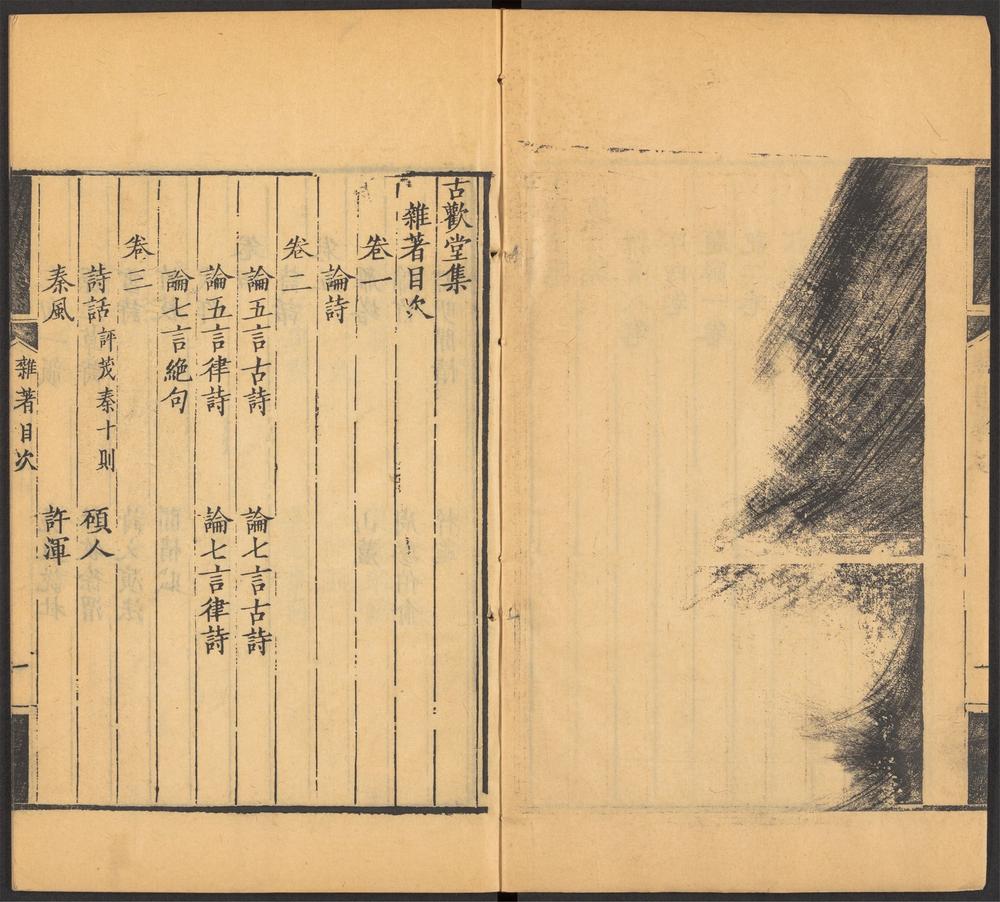 古歡堂集
雜著目次
卷一
論詩
卷二
論五言古詩 論七言古詩
論五言律詩 論七言律詩
論七言絕句
卷三
詩話評茂秦十則 碩人
秦風 許渾
雜著目次 一